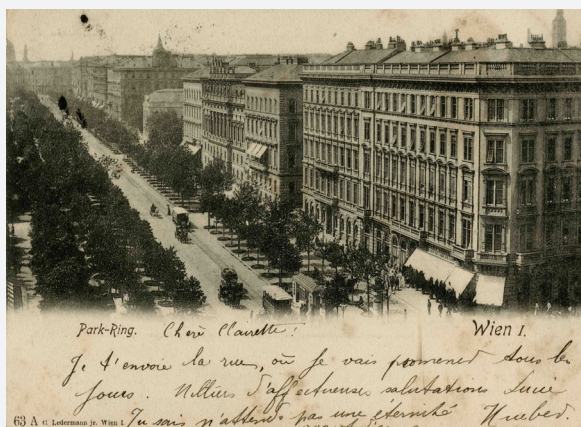 Park-Ring. Chère Clairette! Wien I.
Je t'envoie la rue, où je vais promener tous les
jours. Milliers d'affectueuses salutations Lucie
63 A C. Ledermann jr. Wien I. Tu sais n'attends pas une eternité Huebed.